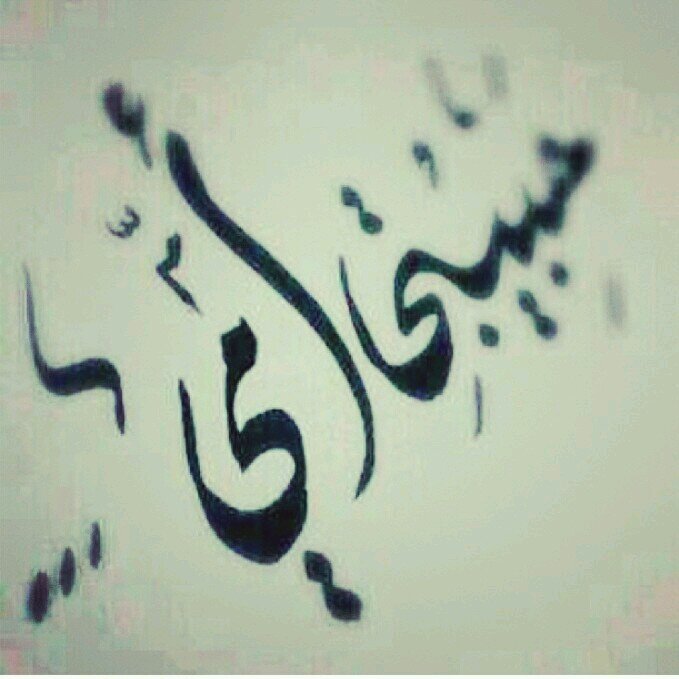 حبيبتي أمي